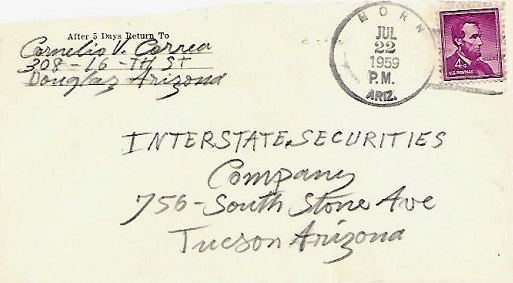 After 5 Days Return To
Cornelio V. Correa
308-16-TH ST
Douglas Arizona
MORN
JUL
22
1959
P.M.
ARIZ.
4¢
U.S. POSTAGE
INTERSTATE SECURITIES
Company
756-South Stone Ave
Tucson Arizona